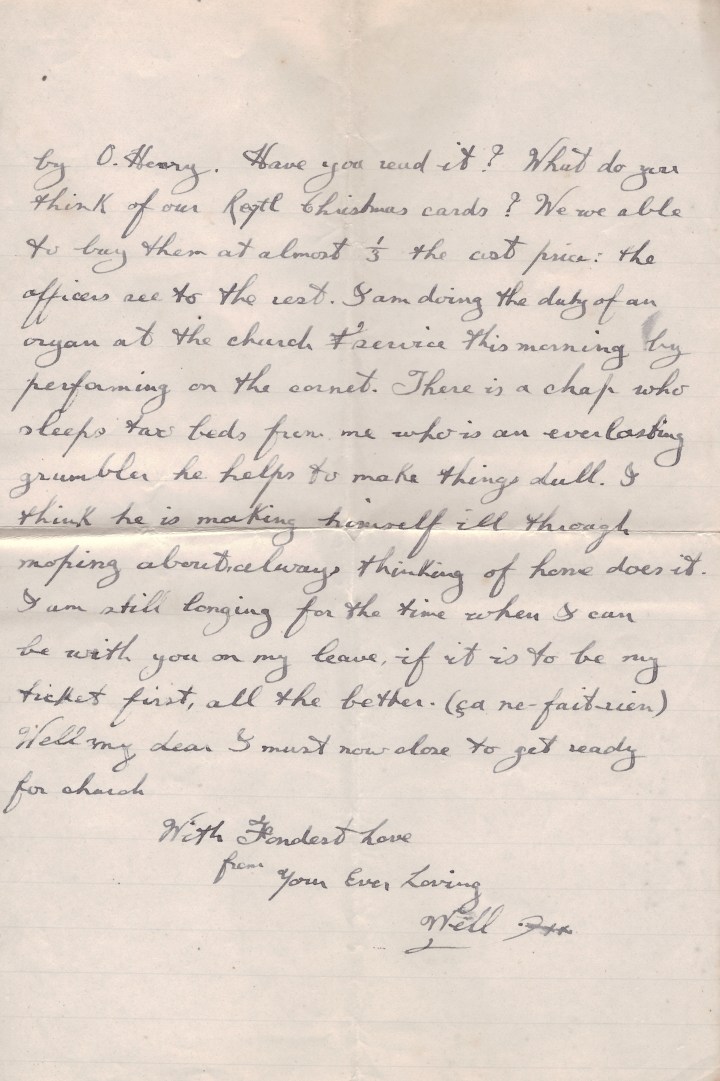 by O. Henry. Have you read it? What do you
think of our Regtl Christmas cards? We we able
to buy them at almost 1/3 the cost price: the
officers see to the rest. I am doing the duty of an
organ at the church service this morning by
performing on the cornet. There is a chap who
sleeps two beds from me who is an everlasting
grumbler he helps to make things dull. I
think he is making himself ill through
moping about, always thinking of home does it.
I am still longing for the time when I can
be with you on my leave, if it is to be my
ticket first, all the better. (ça ne-fait-rien)
Well my dear I must now close to get ready
for church
With Fondest Love
from Your Ever Loving
Will